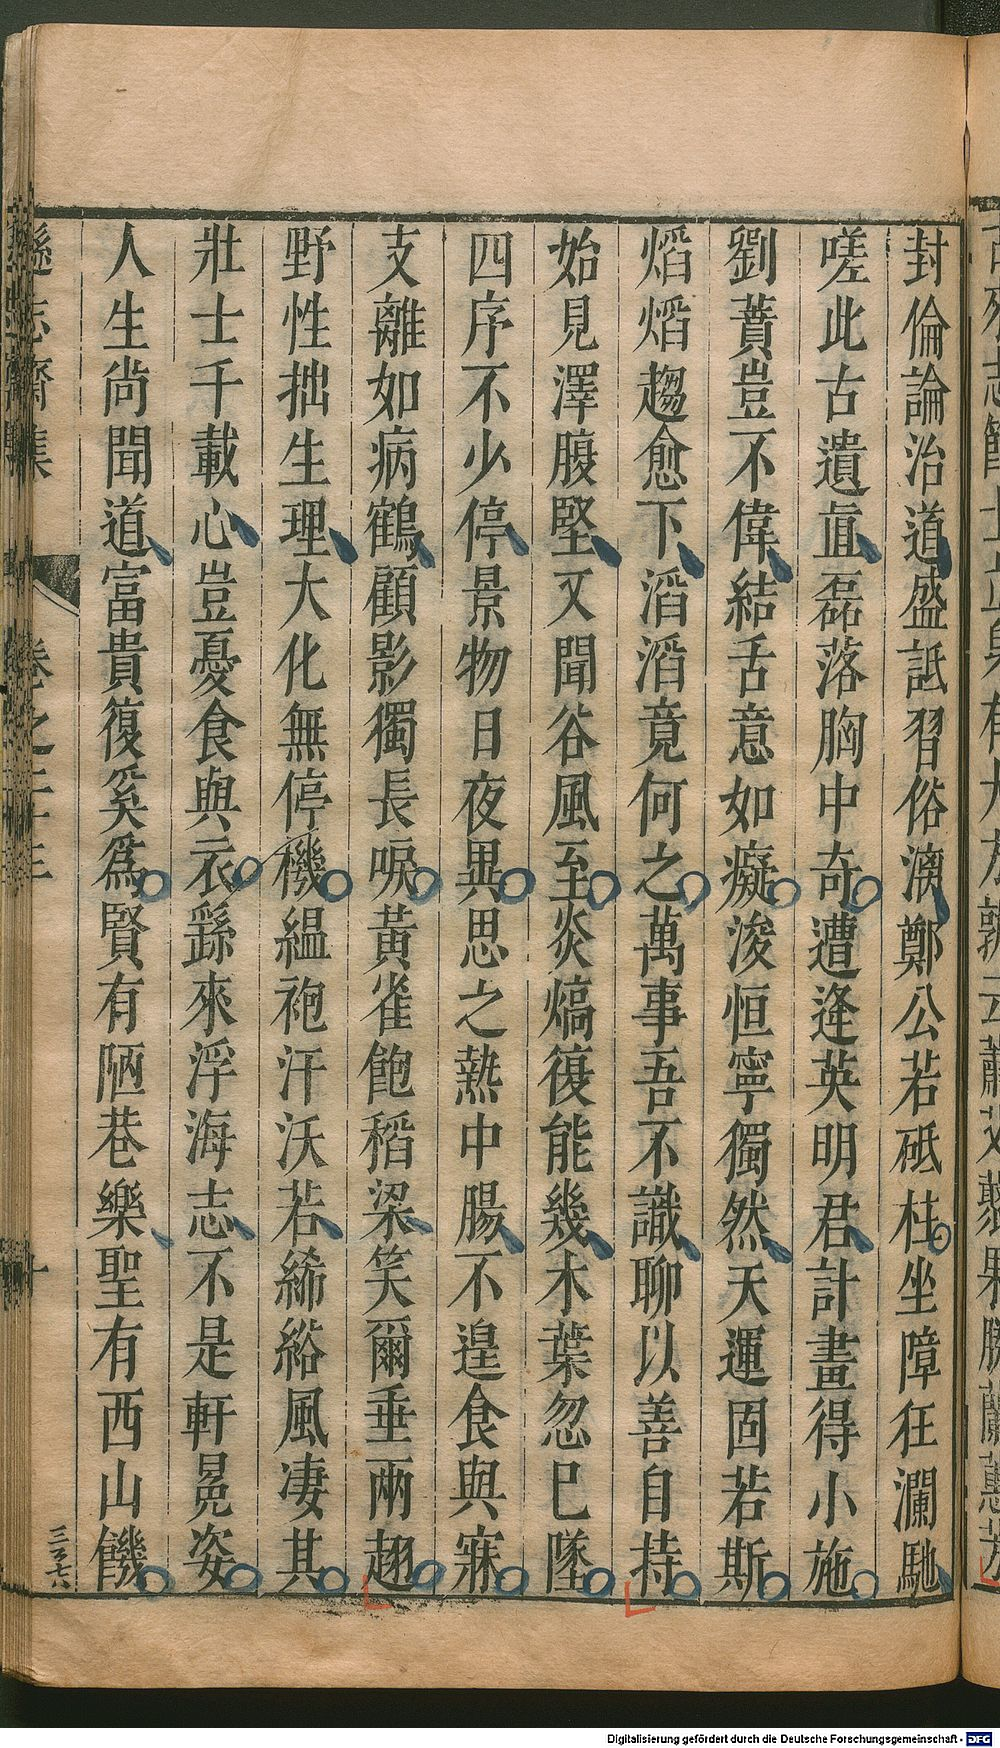 封倫論治道盛詆習俗漓鄭公若砥柱坐障狂瀾馳
嗟此古遺直磊落胸中奇遭逢英明君計畫得小施
劉蕡豈不偉結舌意如癡浚恒寧獨然天運固若斯
熖熖趨愈下滔滔竟何之萬事吾不識聊以善自持
始見澤腹堅又聞谷風至炎熇復能幾木葉忽已墜
四序不少停景物日夜異思之熱中腸不遑食與寐
支離如病鶴顧影獨長唳黃雀飽稻粱笑爾垂兩翅
野性拙生理大化無停機縕袍汗沃若絺綌風凄其
壯士千載心豈憂食與衣繇來浮海志不是軒冕姿
人生尚聞道富貴復奚爲賢有陋巷樂聖有西山饑
遜志齋集
卷之二十三
十
Digitalisierung gefördert durch die Deutsche Forschungsgemeinschaft - DFG